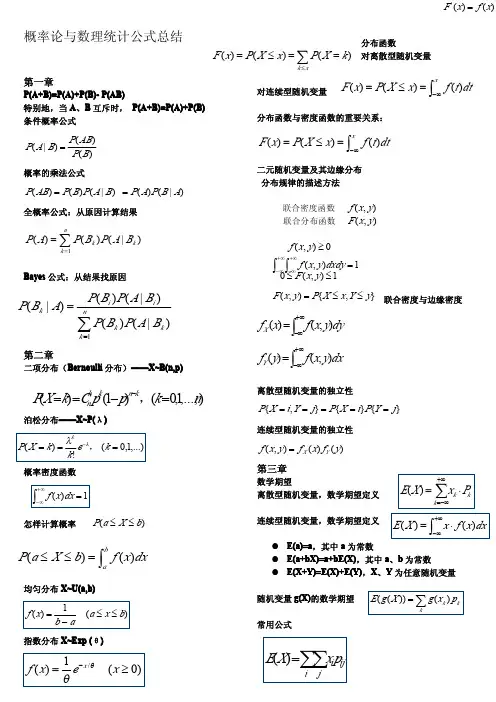 F′(x) = f(x)
概率论与数理统计公式总结
第一章
P(A+B)=P(A)+P(B)- P(AB)
特别地，当 A、B 互斥时， P(A+B)=P(A)+P(B)
条件概率公式
P(A | B) = P(AB) / P(B)
概率的乘法公式
P(AB) = P(B)P(A | B) = P(A)P(B | A)
全概率公式：从原因计算结果
P(A) = ∑_{k=1}^{n} P(B_k)P(A | B_k)
Bayes 公式：从结果找原因
P(B_k | A) = P(B_i)P(A | B_i) / ∑_{k=1}^{n} P(B_k)P(A | B_k)
第二章
二项分布（Bernoulli 分布）——X~B(n,p)
P(X=k) = C_n^k p^k (1−p)^{n−k}，(k=0,1,...n)
泊松分布——X~P(λ)
P(X = k) = λ^k / k! e^{−λ}，(k = 0,1,...)
概率密度函数
∫_{−∞}^{+∞} f(x)dx = 1
怎样计算概率 P(a ≤ X ≤ b)
P(a ≤ X ≤ b) = ∫_a^b f(x)dx
均匀分布 X~U(a,b)
f(x) = 1 / (b − a) (a ≤ x ≤ b)
指数分布 X~Exp (θ)
f(x) = 1/θ e^{−x/θ} (x ≥ 0)
分布函数
对离散型随机变量
F(x) = P(X ≤ x) = ∑_{k≤x} P(X = k)
对连续型随机变量 F(x) = P(X ≤ x) = ∫_{−∞}^{x} f(t)dt
分布函数与密度函数的重要关系：
F(x) = P(X ≤ x) = ∫_{−∞}^{x} f(t)dt
二元随机变量及其边缘分布
分布规律的描述方法
联合密度函数 f(x, y)
联合分布函数 F(x, y)
f(x, y) ≥ 0
∫_{−∞}^{+∞} ∫_{−∞}^{+∞} f(x, y)dxdy = 1
0 ≤ F(x, y) ≤ 1
F(x, y) = P{X ≤ x, Y ≤ y} 联合密度与边缘密度
f_X(x) = ∫_{−∞}^{+∞} f(x, y)dy
f_Y(y) = ∫_{−∞}^{+∞} f(x, y)dx
离散型随机变量的独立性
P{X = i, Y = j} = P{X = i}P{Y = j}
连续型随机变量的独立性
f(x, y) = f_X(x)f_Y(y)
第三章
数学期望
离散型随机变量，数学期望定义 E(X) = ∑_{k=−∞}^{+∞} x_k · P_k
连续型随机变量，数学期望定义 E(X) = ∫_{−∞}^{+∞} x · f(x)dx
● E(a)=a，其中 a 为常数
● E(a+bX)=a+bE(X)，其中 a、b 为常数
● E(X+Y)=E(X)+E(Y)，X、Y 为任意随机变量
随机变量 g(X)的数学期望 E(g(X)) = ∑_k g(x_k)p_k
常用公式
E(X) = ∑_i ∑_j x_i p_ij